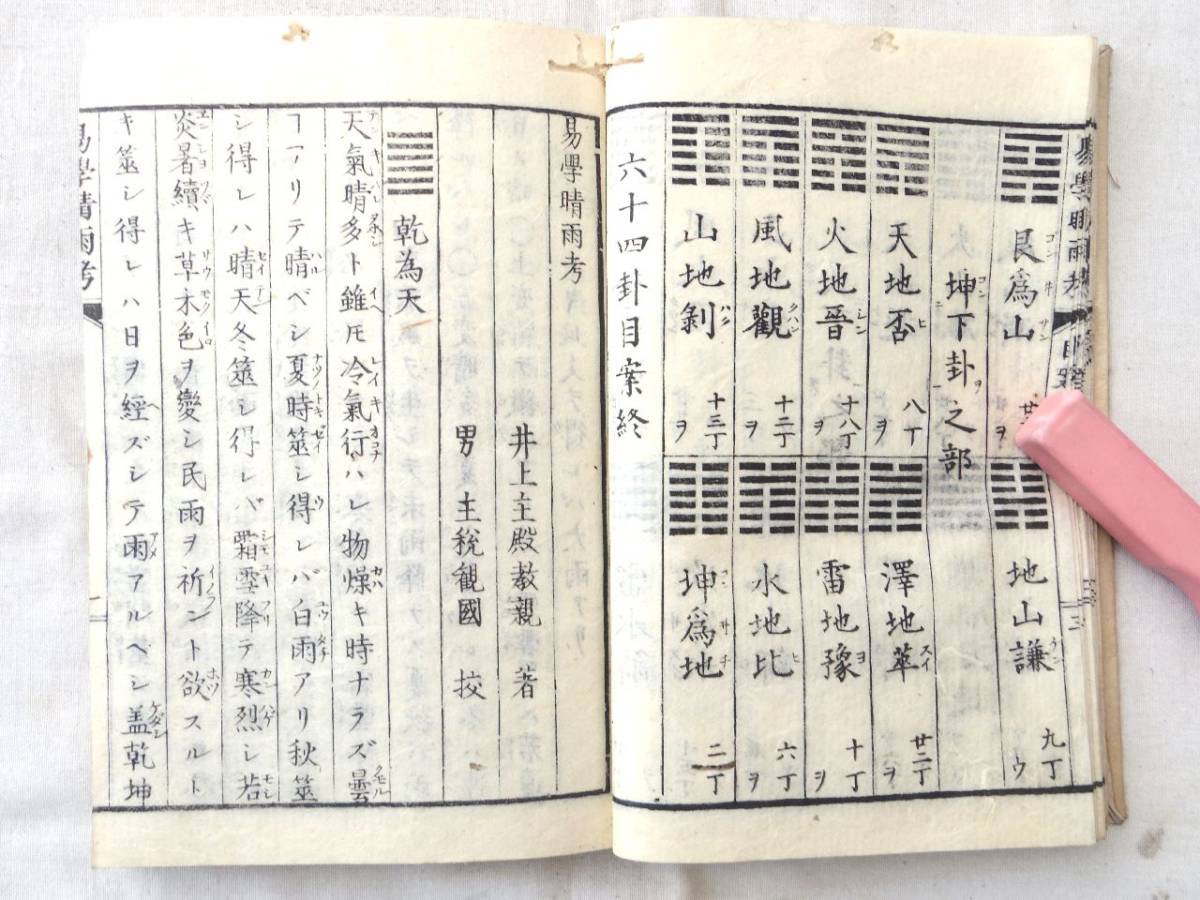 艮爲山
地山謙 九丁ウ
坤下卦之部
天地否 八丁ヲ
澤地萃 廿二丁ヲ
火地晉 十八丁ヲ
雷地豫 十丁ヲ
風地觀 十二丁ヲ
水地比 六丁ヲ
山地剝 十三丁ヲ
坤爲地 二丁ヲ
六十四卦目案終
易學晴雨考
井上主殿教親 著
男 主稅観國 挍
乾為天
天氣晴多ト雖モ冷氣行ハレ物燥キ時ナラズ曇
ヿアリテ晴ベシ夏時筮シ得レバ白雨アリ秋筮
シ得レハ晴天冬筮シ得レバ霜雪降テ寒烈シ若
炎暑續キ草木色ヲ變シ民雨ヲ祈ント欲スルト
キ筮シ得レハ日ヲ經ズシテ雨アルベシ盖乾坤
易學晴雨考